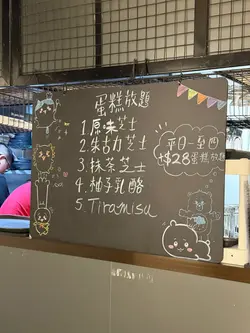 蛋糕放題
1.原味芝士
2.朱古力芝士
3.抹茶芝士
4.柚子乳酪
5.Tiramisu
平日一至四
+$28蛋糕放題